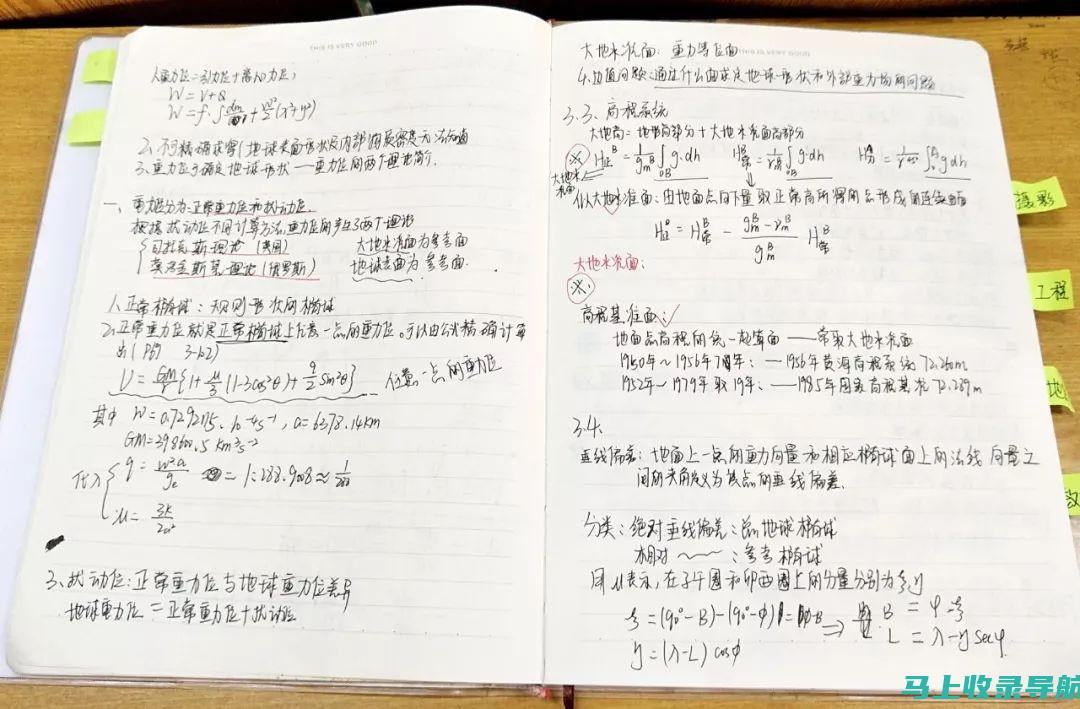 THIS IS VERY GOOD
1.重力位=引力位+离心力位;
W=V+Q
W=f·∫dm/r+w²/2(x²+y²)
2.不可精确求得(地球表面形状及内部质量密度无法知道
3.重力位可确定地球形状——重力位的两个理论
一、重力位分为:正常重力位和扰动位.
根据扰动位不同计算方法,重力位问产生了两个理论
司托克斯理论(英国) 大地水准面为参考面
莫洛金斯基理论(俄罗斯) 地球表面为参考面.
1.正常椭球:规则形状的椭球
2.正常重力位就是正常椭球上任意一点的重力位。可以由公式精确计算
出(P51 3-62)
U=GM/r{1+μ/3(1-3cos²θ)+q/2 sin²θ} 任意一点的重力位
其中 W=0.7292115.10⁻⁴s⁻¹, a=6378.14km
GM=398600.5 km³s⁻²
代入 q=w²a/ge =1:288.9008≈
μ=3K/2a²
3、扰动位:正常重力位与地球重力位差异
地球重力位=正常重力位+扰动位
大地水准面:重力等位面
THIS IS VERY GOOD
4.边值问题:通过什么面求定地球形状和外部重力场的问题
3.3.高程系统
大地高=地形高部分+大地水准面高部分
※ H正ᴮ=1/gmᴮ∫OB g·dh H常ᴮ=1/γmᴮ∫OB g·dh
大地水准面
似大地水准面:由地面点向下量取正常高所得的点形成的连续曲面
H正ᴮ=H常ᴮ-(gmᴮ-γmᴮ)/gmᴮ H常ᴮ
大地水准面:
※.
高程基准面:
地面点高程的统一起算面——常取大地水准面
1950年~1956年7年:—1956年黄海高程系统 72.260m
1952年~1979年取19年:——1985年国家高程基准72.289m
3.4.
垂线偏差:地面上一点的重力向量和相应椭球面上的法线向量之
间的夹角定义为该点的垂线偏差.
分类:绝对垂线偏差:总地球椭球
相对 ~~ :参考椭球
用μ表示,在子午圈和卯酉圈上的分量分别为ξ,η
ξ=(90°-B)-(90°-φ)=φ-B ⇒ B=φ-ξ
η=(λ-L)cosφ L=λ-η secφ
摄影
工程
地
教
马上收录导航